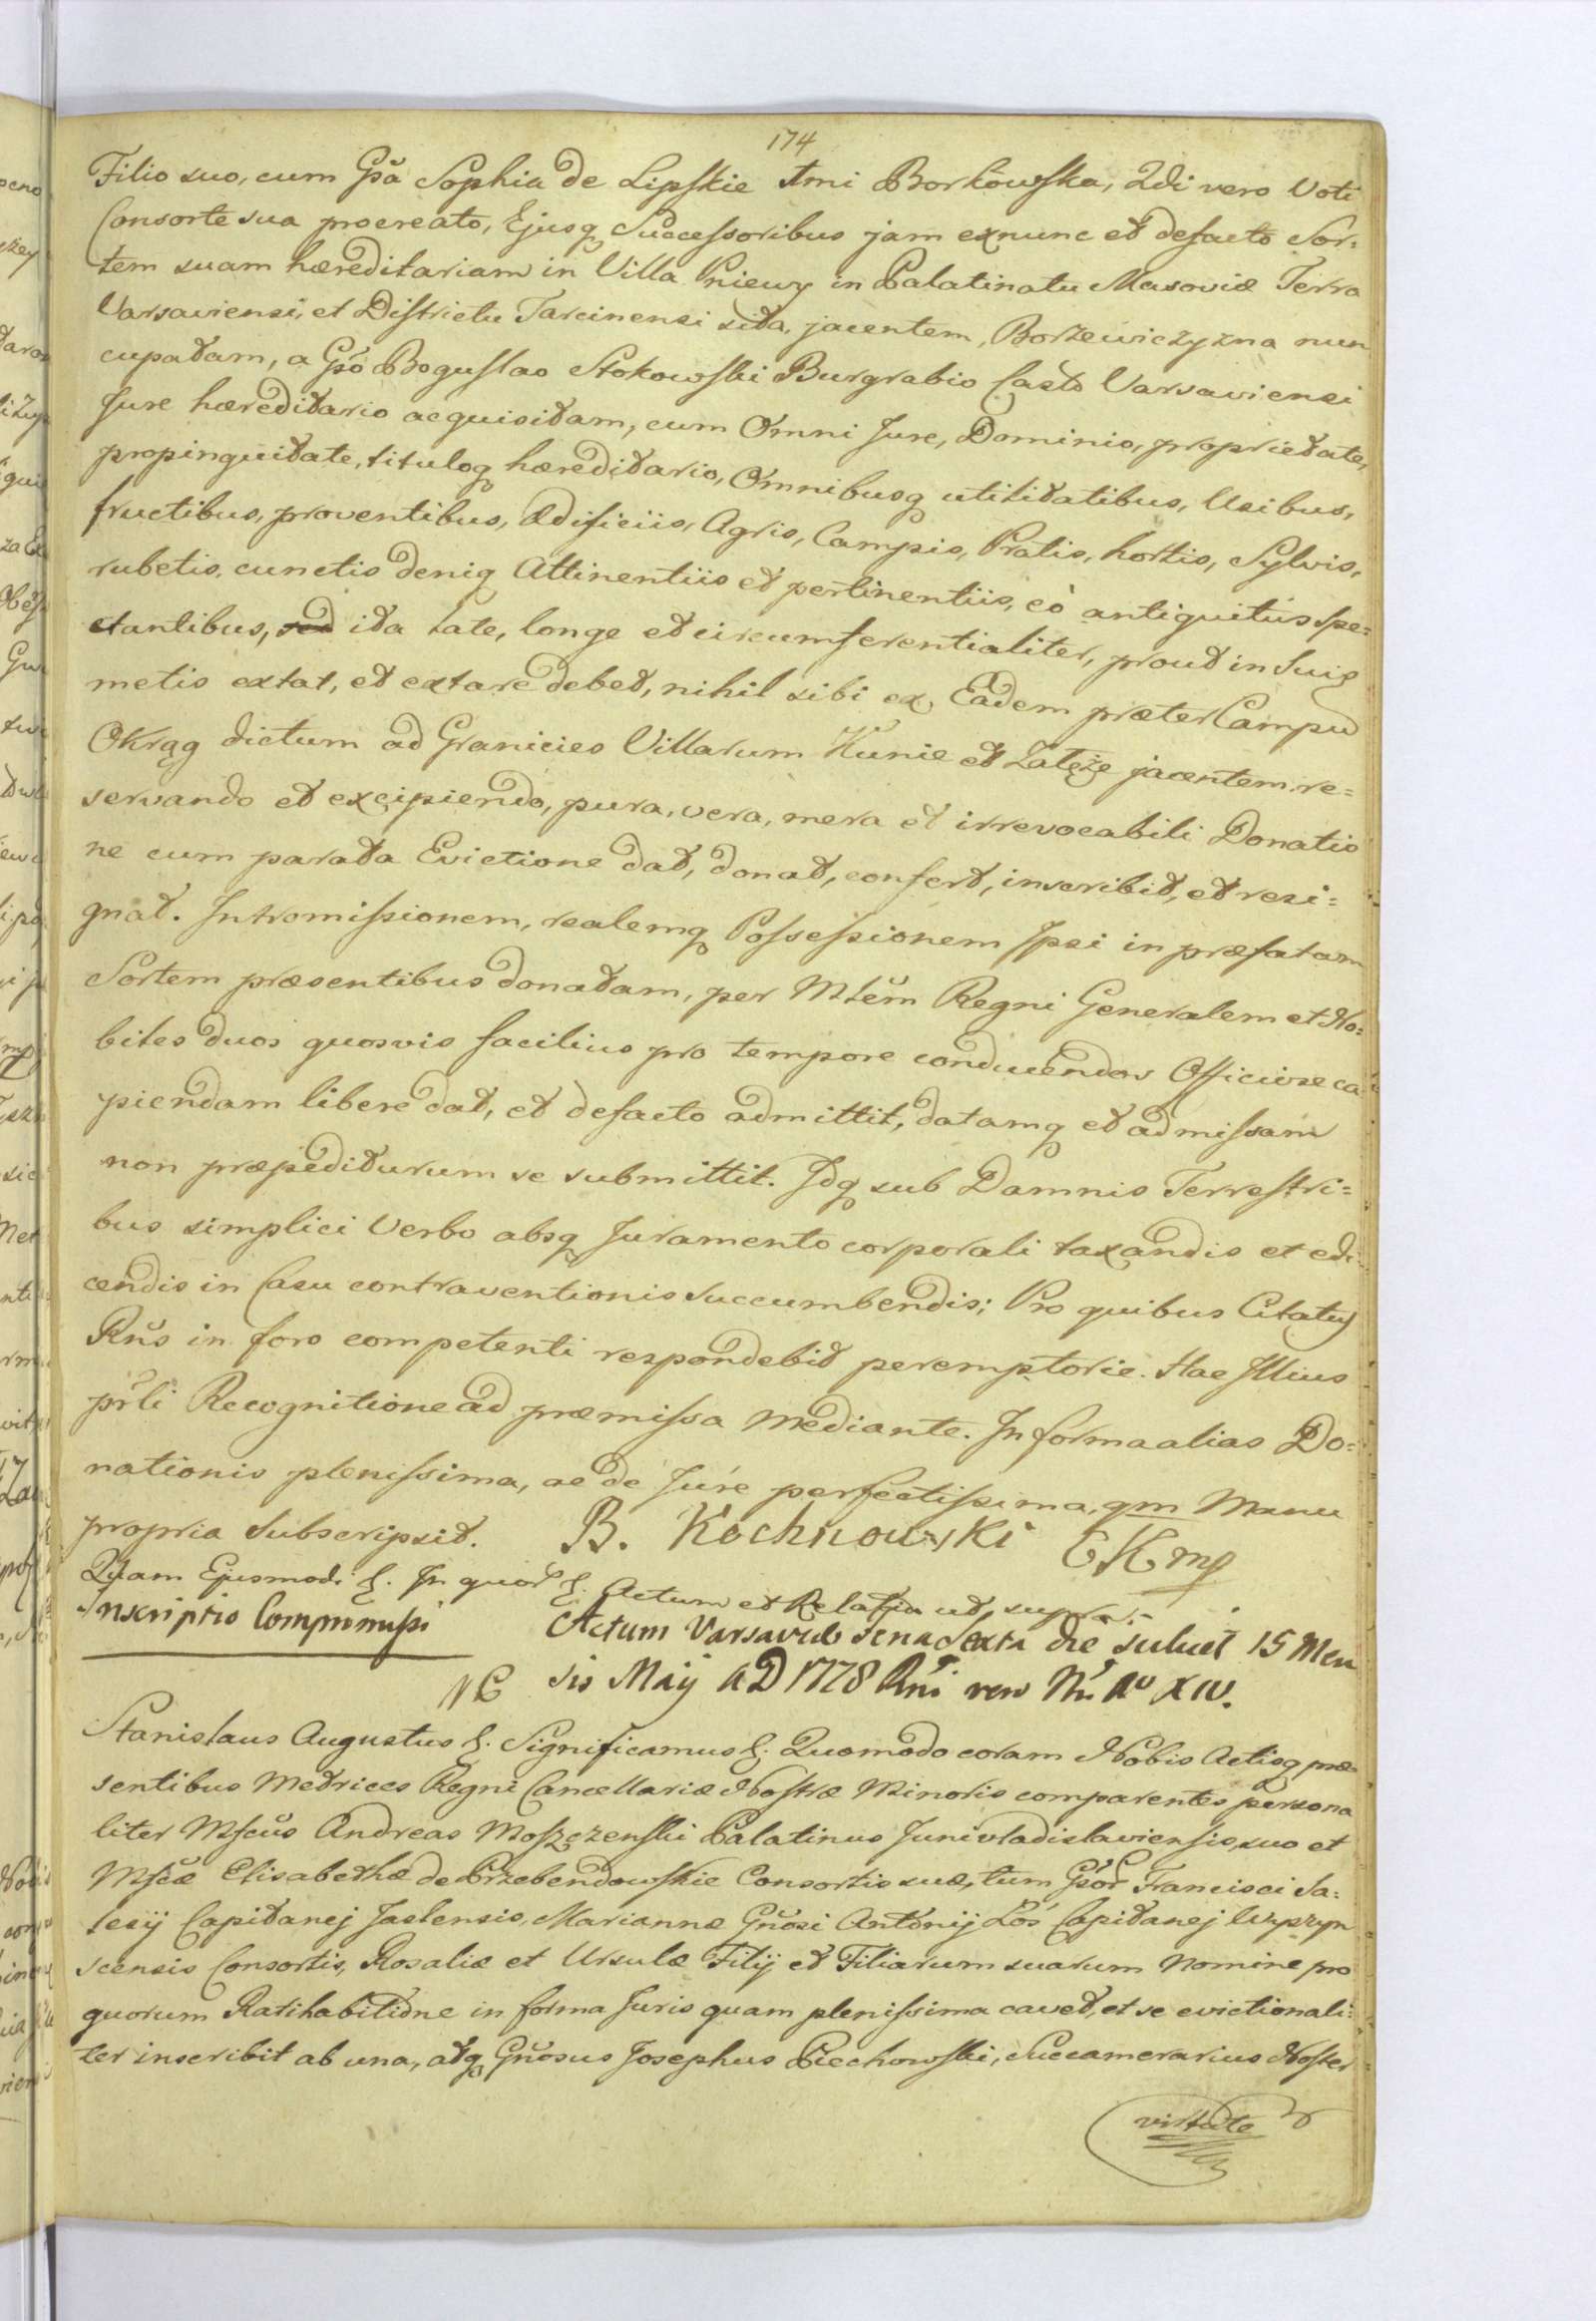 174
Filio suo, cum Gsã Sophia de Lipskie 1mi Borkowska, 2di vero Voti
Consorte sua procreato, Ejusq Successoribus jam exnunc et defacto Sor=
tem suam hæreditariam in Villa Pniewy in Palatinatu Masoviæ Terra
Varsaviensi, et Districtu Tarcinensi sita, jacentem, Borzewiczyzna nun
cupatam, a Gsõ Boguslao Stokowski Burgrabio Castr Varsaviensi
Jure hæreditario acquisitam, cum Omni Jure, Dominio, proprietate,
propinquitate, tituloq hæreditario, Omnibusq utilitatibus, Usibus,
fructibus, proventibus, Ædificiis, Agris, Campis, Pratis, hortis, Sylvis,
rubetis, cunctis deniq Attinentiis et pertinentiis, eò antiquitus spe=
ctantibus, sed ita late, longe et circumferentialiter, prout in Suis
metis extat, et extare debet, nihil sibi ex Eadem præter Campũ
Okrąg dictum ad Granicies Villarum Kunie et Latęże jacentem re=
servando et excipiendo, pura, vera, mera et irrevocabili Donatio
ne cum parata Evictione dat, donat, confert, inscribit, et resi=
gnat. Intromissionem, realemq Possessionem Ipsi in præfatam
Sortem præsentibus donatam, per Mtẽm Regni Generalem et No=
biles duos quosvis facilius pro tempore conducendos Officiose ca
piendam libere dat, et defacto admittit, datamq et admissam
non præpediturum se submittit. Idq sub Damnis Terrestri=
bus simplici Verbo absq Juramento corporali taxandis et edi
cendis in Casu contraventionis succumbendis; Pro quibus Citatus
Rñs in foro competenti respondebit peremptorie. Hac Illius
prli Recognitione ad præmissa mediante. In forma alias Do=
nationis plenissima, ac de Jure perfectissima, qm Manu
propria Subscripsit. B. Kochnowski CKmp
Quam Ejusmodi &. In quor &. Actum et Relatia ut supra.
Inscriptio Compromissi Actum Varsaviæ die 15 Men
NC sis Maij AD 1778 Rñi vero Nri Aº XIV.
Stanislaus Augustus &. Significamus &. Quomodo coram Nobis Actisq præ
sentibus Metrices Regni Cancellariæ Nostræ Minoris comparentes persona
liter Mfcũs Andreas Moszczenski Palatinus Junivladislaviensis, suo et
Mfcæ Elisabethæ de Przebendowskie Consortis suæ, tum Gsõr Francisci Sa=
lesij Capitanej Jaslensis, Mariannæ Gñosi Antonij Łos Capitanej Wyszyn
scensis Consortis, Rosaliæ et Ursulæ Filij et Filiarum suarum Nomine pro
quorum Ratihabitione in forma Juris quam plenissima cavet, et se evictionali=
ter inscribit ab una, atq Gñosus Josephus Piechowski, Succamerarius Noster